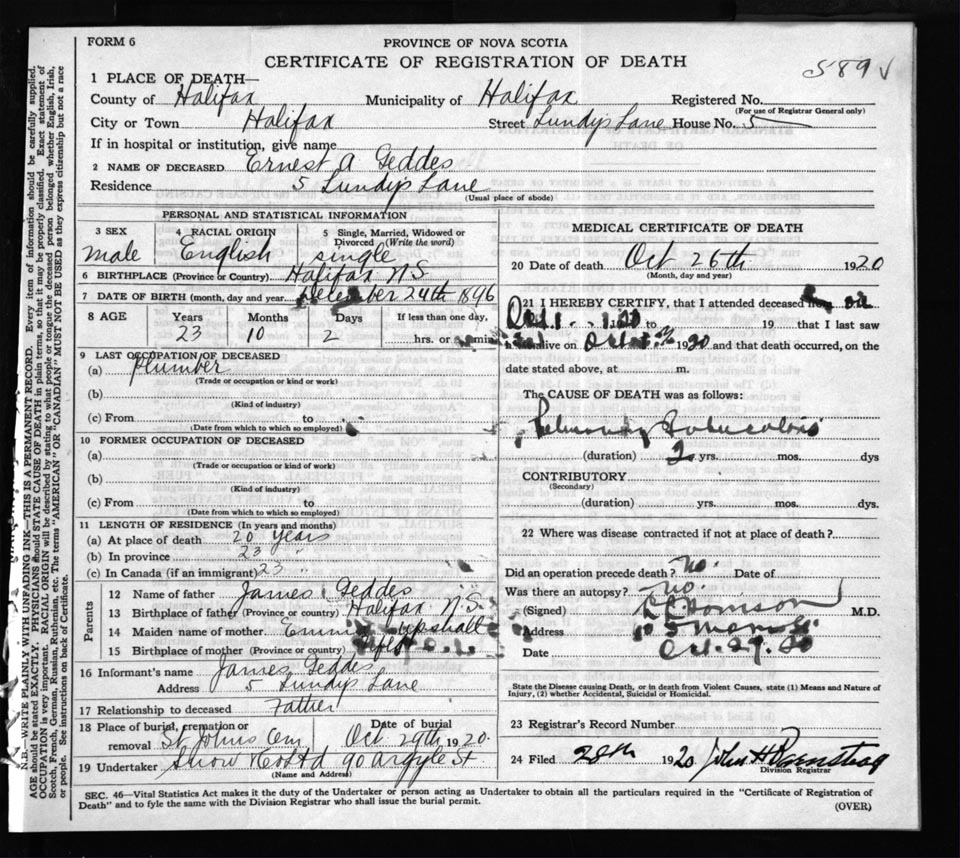 FORM 6
PROVINCE OF NOVA SCOTIA
CERTIFICATE OF REGISTRATION OF DEATH
589 √
1 PLACE OF DEATH—
County of Halifax Municipality of Halifax Registered No.
(For use of Registrar General only)
City or Town Halifax Street Lundy's Lane House No. 5
If in hospital or institution, give name
2 NAME OF DECEASED Ernest A Geddes
Residence 5 Lundy's Lane
(Usual place of abode)
PERSONAL AND STATISTICAL INFORMATION
3 SEX 4 RACIAL ORIGIN 5 Single, Married, Widowed or Divorced (Write the word)
male English single
6 BIRTHPLACE (Province or Country) Halifax N.S.
7 DATE OF BIRTH (month, day and year December 24th 1896
8 AGE Years Months Days If less than one day,
23 10 2 hrs. or min.
9 LAST OCCUPATION OF DECEASED
(a) Plumber
(Trade or occupation or kind or work)
(b)
(Kind of industry)
(c) From to
(Date from which to which so employed)
10 FORMER OCCUPATION OF DECEASED
(a)
(Trade or occupation or kind or work)
(b)
(Kind of industry)
(c) From to
(Date from which to which so employed)
11 LENGTH OF RESIDENCE (In years and months)
(a) At place of death 20 years
(b) In province 23 "
(c) In Canada (if an immigrant) 23 "
Parents
12 Name of father James Geddes
13 Birthplace of father (Province or country) Halifax N.S.
14 Maiden name of mother. Emma upshall
15 Birthplace of mother (Province or country)
16 Informant's name James Geddes
Address 5 Lundy's Lane
17 Relationship to deceased Father
18 Place of burial, cremation or removal St John's Cem Date of burial Oct 29th 1920.
19 Undertaker Snow & Co Ltd 90 Argyle St.
(Name and Address)
MEDICAL CERTIFICATE OF DEATH
20 Date of death Oct 26th 1920
(Month, day and year)
21 I HEREBY CERTIFY, that I attended deceased from on
Oct 1 1920 to 19 that I last saw
alive on Oct 1920 and that death occurred, on the
date stated above, at m.
The CAUSE OF DEATH was as follows:
Pulmonary Tuberculosis
(duration) 2 yrs. mos. dys
CONTRIBUTORY
(Secondary)
(duration) yrs. mos. dys.
22 Where was disease contracted if not at place of death?
Did an operation precede death? No. Date of
Was there an autopsy? No.
(Signed) M.D.
Address
Date Oct. 29. 20
State the Disease causing Death, or in death from Violent Causes, state (1) Means and Nature of
Injury, (2) whether Accidental, Suicidal or Homicidal.
23 Registrar's Record Number
24 Filed 28th 1920 John H
Division Registrar
SEC. 46—Vital Statistics Act makes it the duty of the Undertaker or person acting as Undertaker to obtain all the particulars required in the "Certificate of Registration of
Death" and to fyle the same with the Division Registrar who shall issue the burial permit.
(OVER)
N.B.—WRITE PLAINLY WITH UNFADING INK—THIS IS A PERMANENT RECORD. Every item of information should be carefully supplied.
AGE should be stated EXACTLY. PHYSICIANS should STATE CAUSE OF DEATH in plain terms, so that it may be properly classified. Exact statement of
OCCUPATION is very important. RACIAL ORIGIN will be described by stating to what people or tongue the deceased person belonged whether English, Irish,
Scotch, French, German, Russian, Ruthenian, etc. The terms "AMERICAN" OR "CANADIAN" MUST NOT BE USED as they express citizenship but not a race
or people. See instructions on back of Certificate.